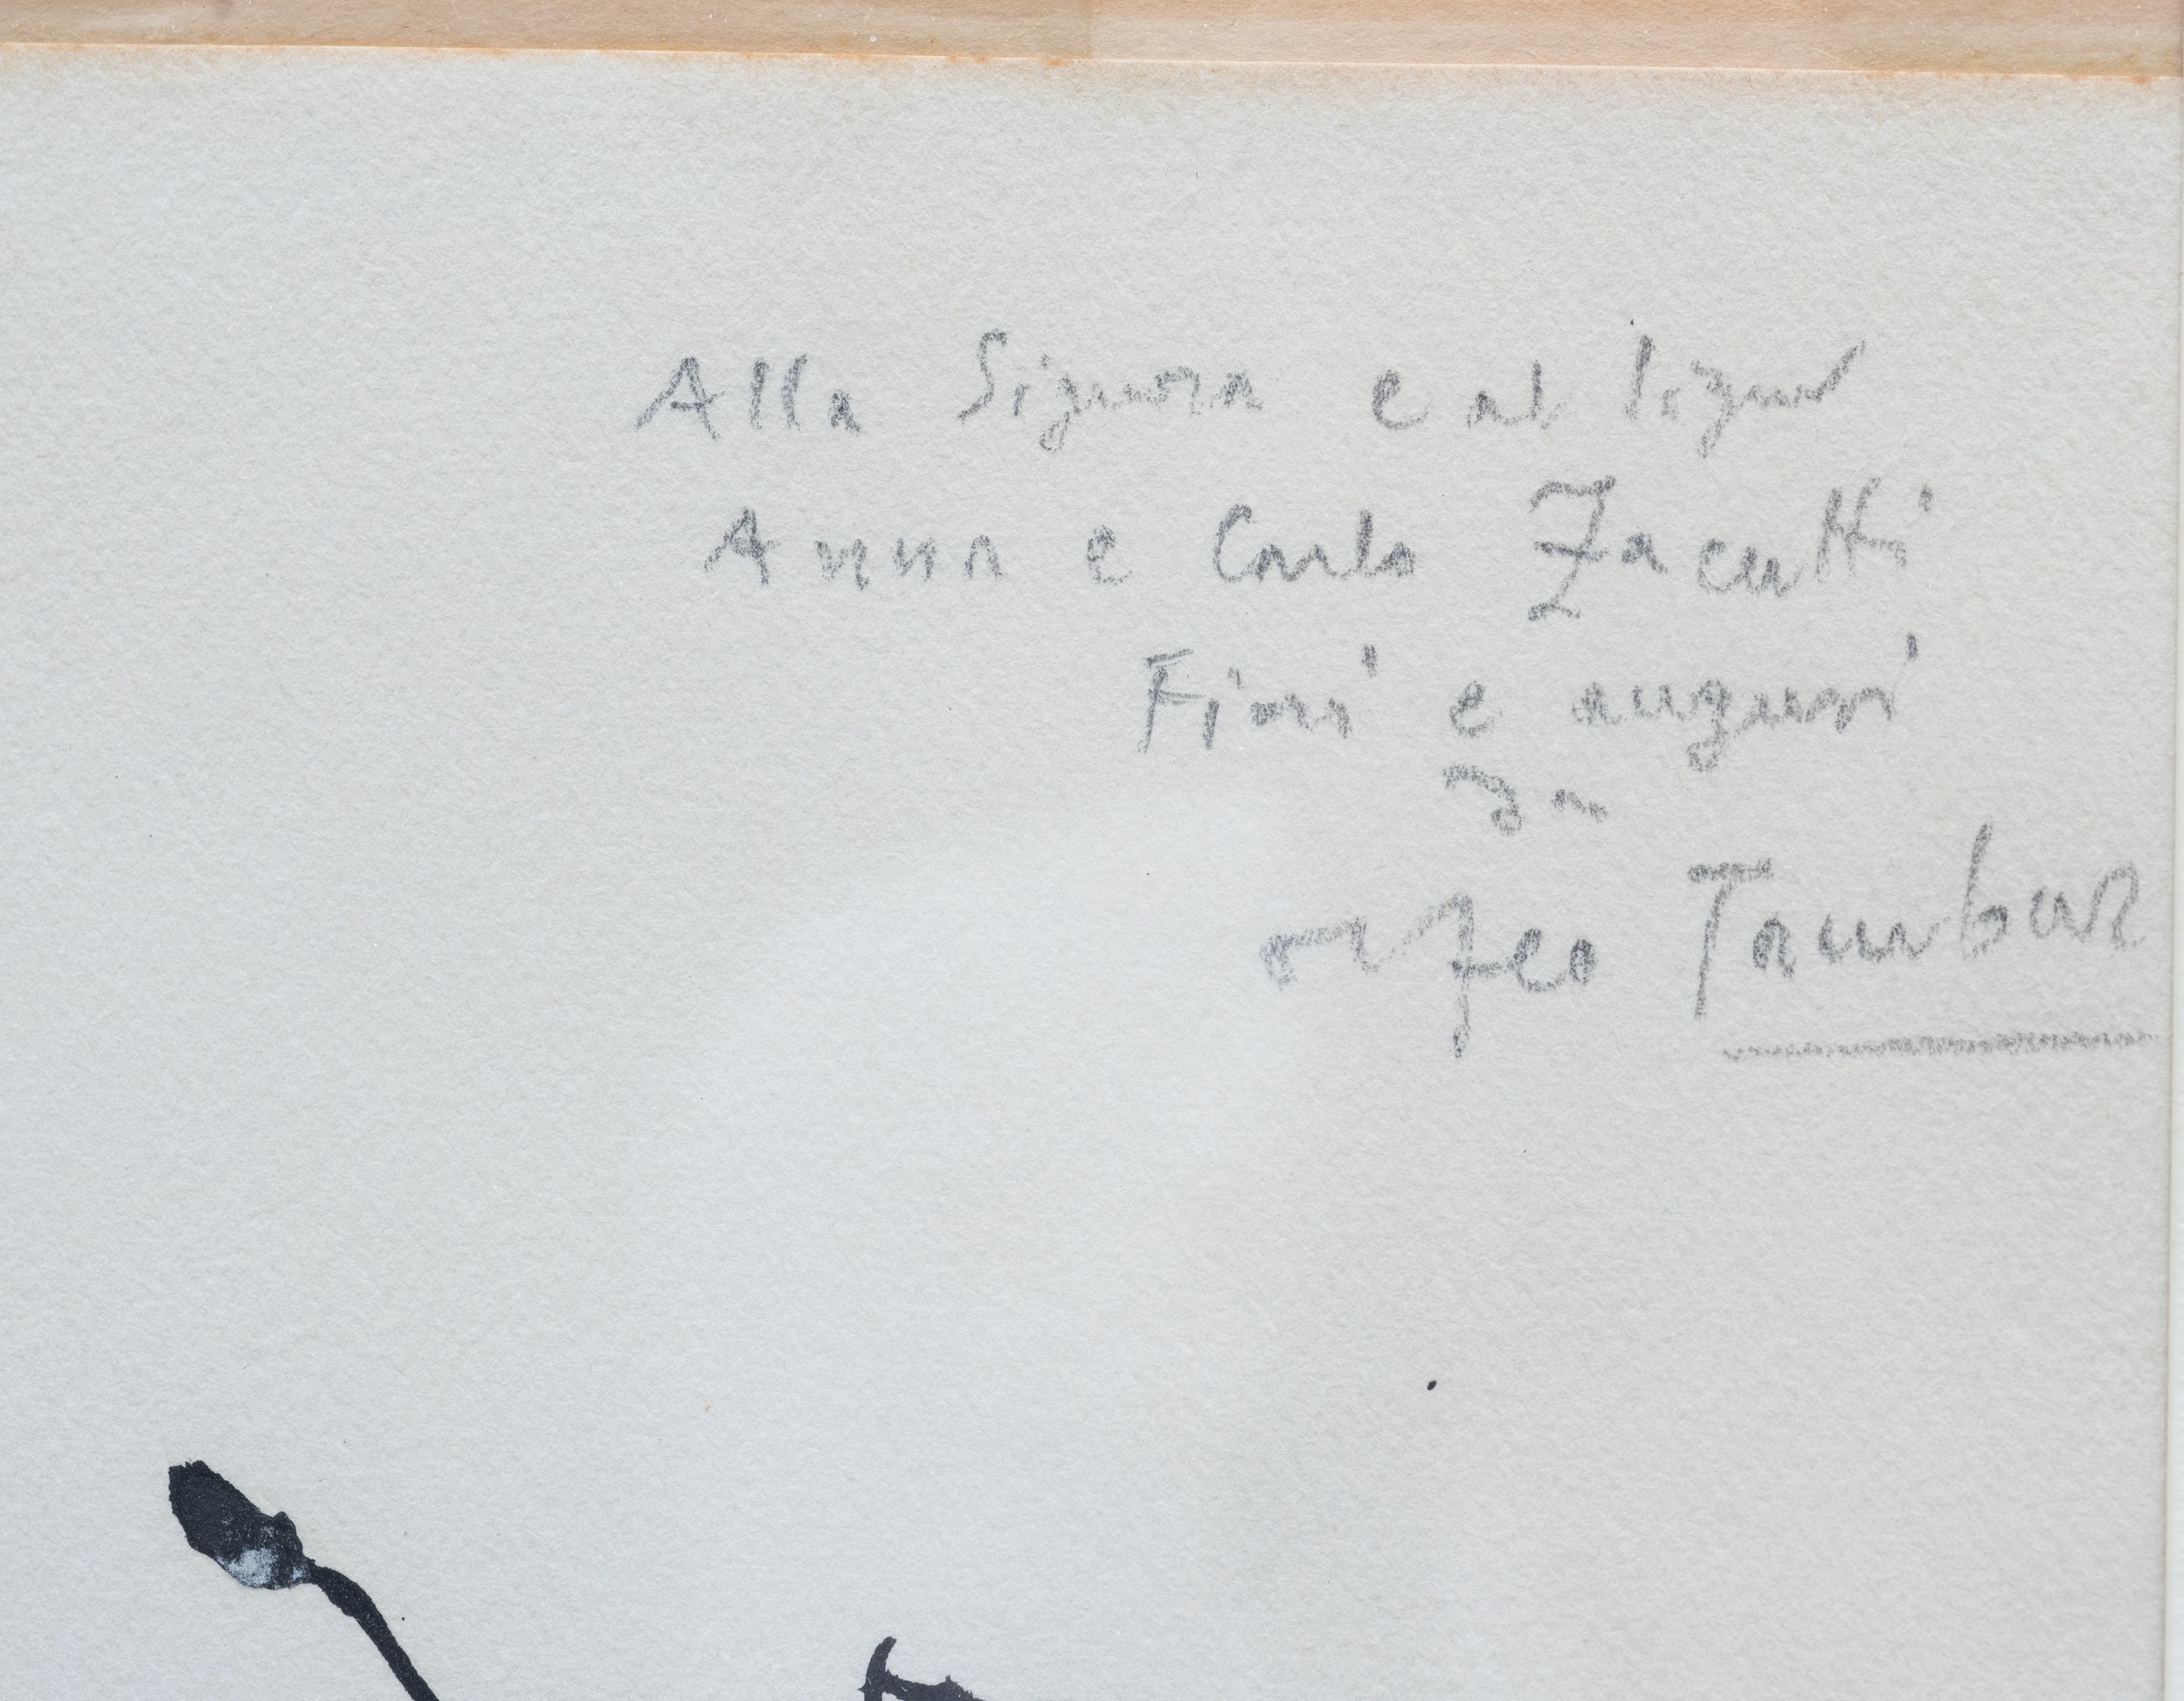 Alla Signora e al Signor
Anna e Carlo Zacutti
Fiori e auguri
Da
orfeo Tambur